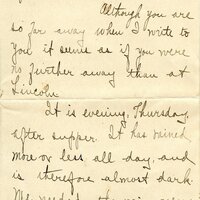 Although you are
so far away when I write to
you it seems as if you were
no further away than at
Lincoln.
It is evening, Thursday,
after supper. It has rained
more or less all day, and
is therefore almost dark.
We needed the rain